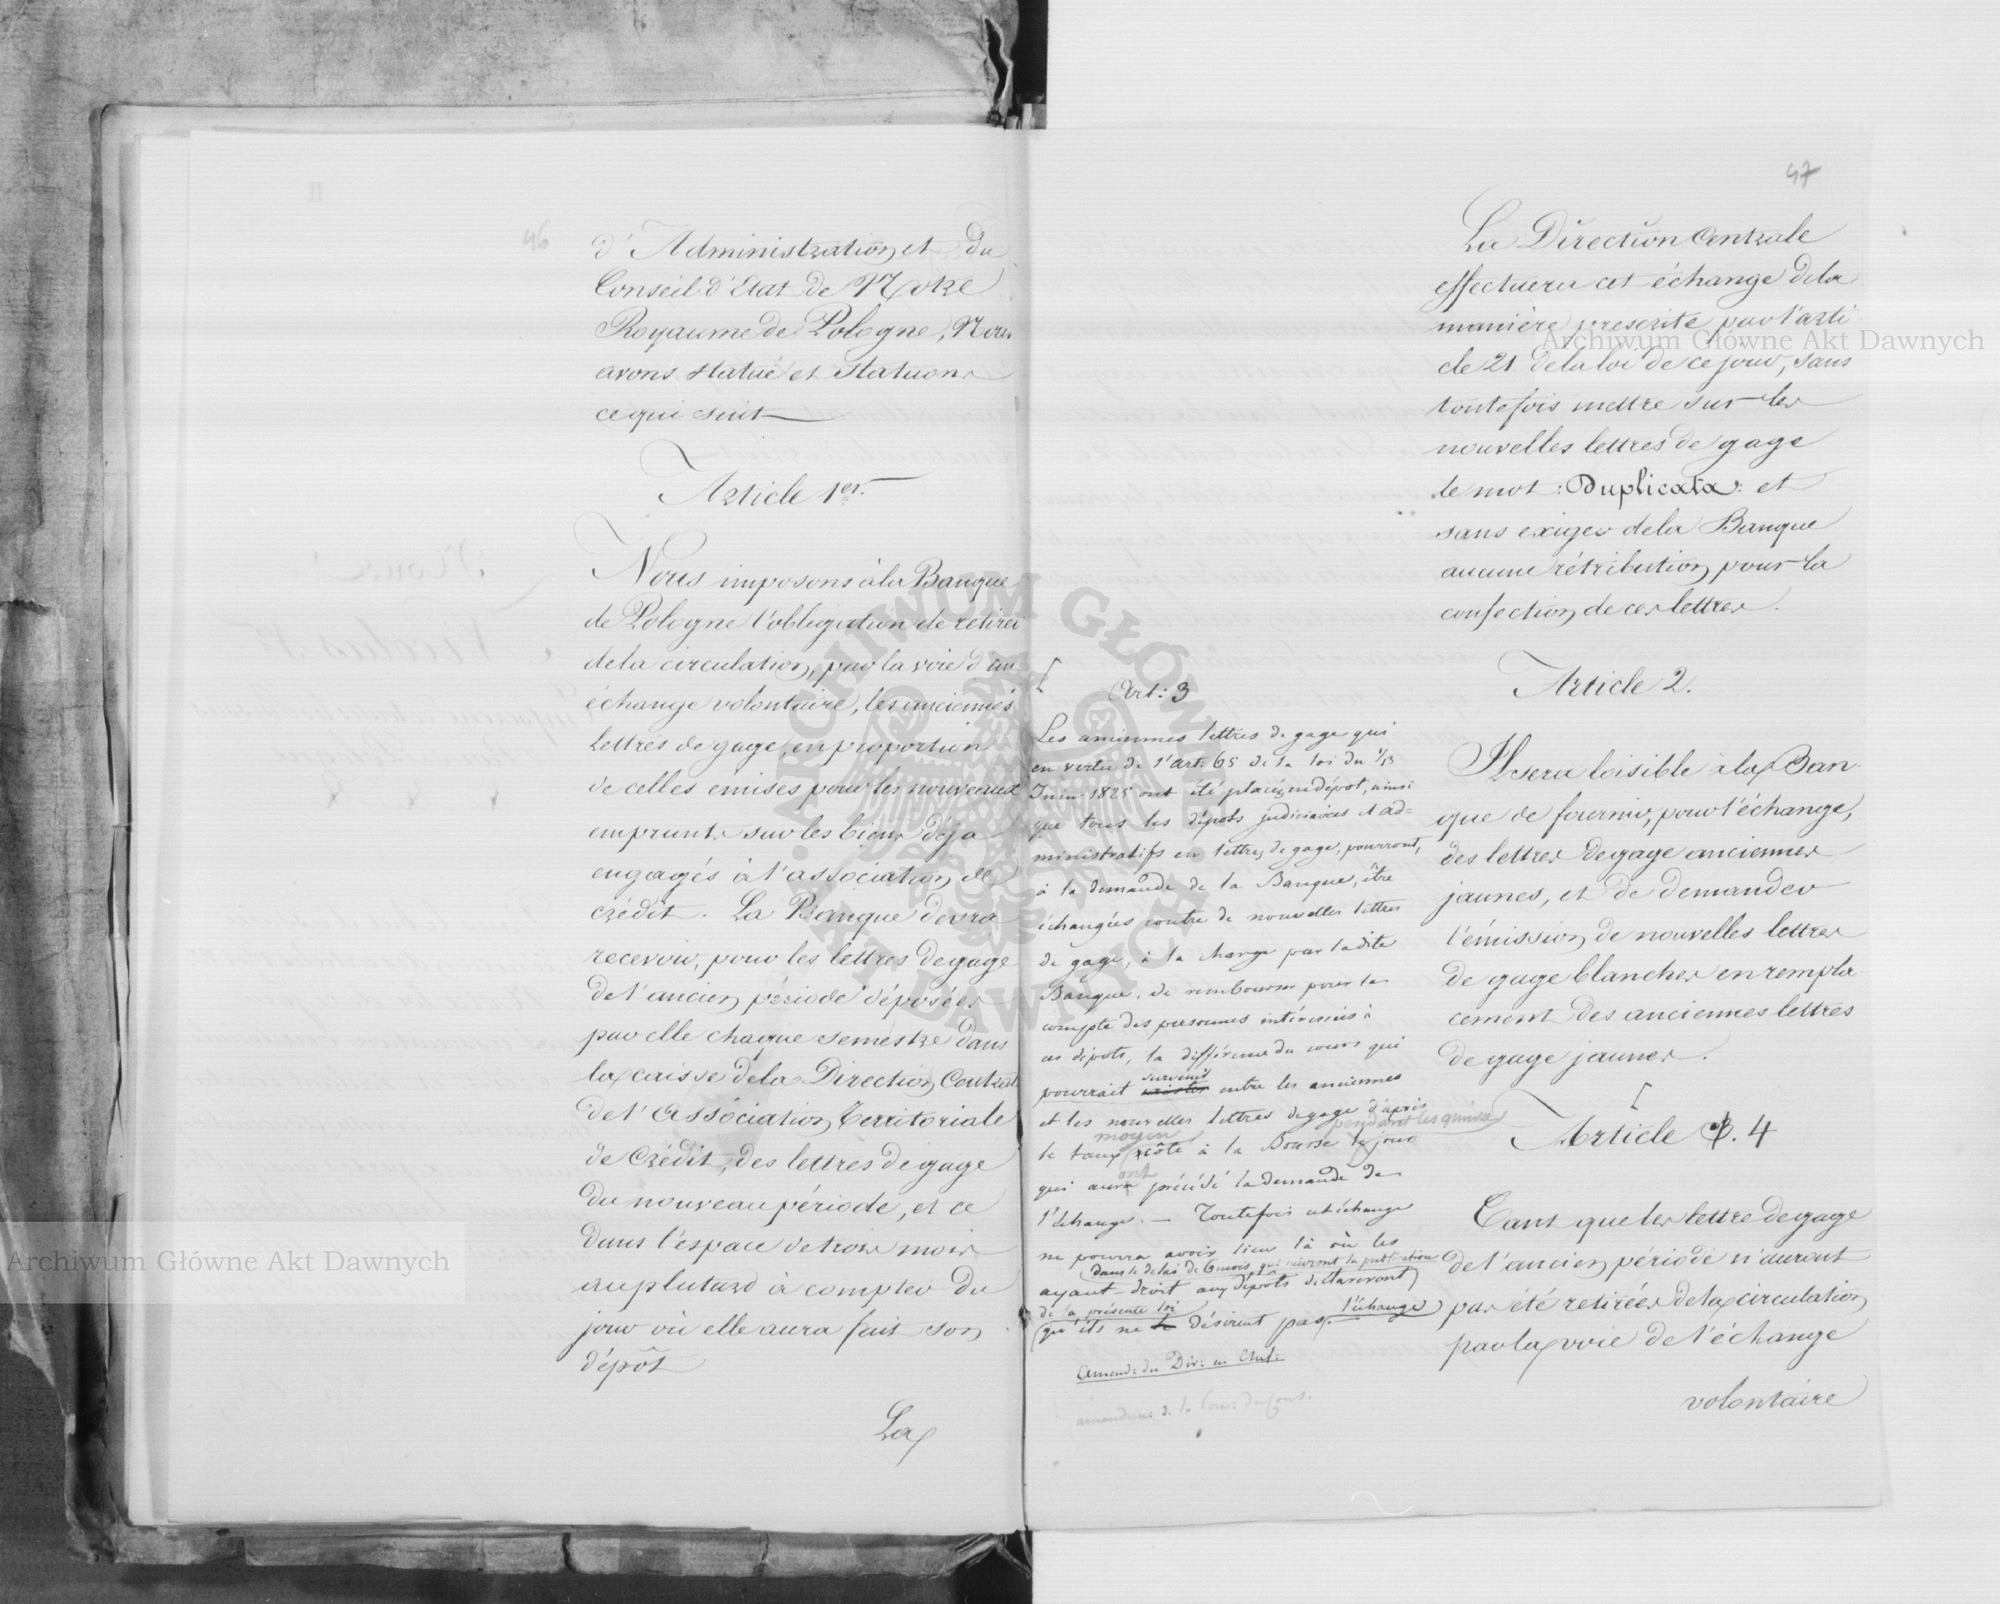 46
d'Administration et du
Conseil d'Etat de Notre
Royaume de Pologne, Nous
avons statué et statuons
ce qui suit
Article 1er.
Nous imposons à la Banque
de Pologne l'obligation de retirer
de la circulation, par la voie d'un
échange volontaire, les anciennes
lettres de gage, en proportion
de celles émises pour les nouveaux
emprunts sur les biens déjà
engagés à l'association de
crédit. La Banque devra
recevoir, pour les lettres de gage
de l'ancien période déposées
par elle chaque semestre dans
la caisse de la Direction Central
de l'Association Territoriale
de Crédit, des lettres de gage
du nouveau période, et ce
dans l'espace de trois mois
au plutard à compter du
jour où elle aura fait son
dépôt
La
47
La Direction Centrale
effectuera cet échange de la
manière prescrite par l'arti
cle 21 de la loi de ce jour, sans
toutefois mettre sur les
nouvelles lettres de gage
le mot :Duplicata: et
sans exiger de la Banque
aucune rétribution pour la
confection de ces lettres.
Article 2.
Il sera loisible à la Ban-
que de fournir, pour l'échange,
des lettres de gage anciennes
jaunes, et de demander
l'émission de nouvelles lettres
de gage blanches en rempla
cement des anciennes lettres
de gage jaunes.
Article 3. 4
Tant que les lettre de gage
de l'ancien période n'auront
pas été retirées de la circulation
par la voie de l'échange
volontaire
Art: 3
Les anciennes lettres de gage qui
en vertu de l'art: 65 de la loi du 1/13
Juin 1825 ont été placés en dépôt, ainsi
que tous les dépots judiciaires et ad=
ministratifs en lettres de gage, pourront,
à la demande de la Banque, être
échangées contre de nouvelles lettres
de gage, à la charge par ladite
Banque, de rembourser pour le
compte des personnes intéressées à
ces dépots, la différence du cours qui
survenir
pourrait exister entre les anciennes
et les nouvelles lettres de gage d'après
moyen pendant les quinze
le taux côté à la Bourse le jour
ont
qui aura précédé la demande de
l'échange. — Toutefois cet échange
ne pourra avoir lieu là où les
dans le délai de 6 mois qui suivront la publication
ayant-droit aux dépôts déclareront
de la présente loi l'échange
qu'ils ne le désirent pas.
Amend: du Dir: en Chef:
Archiwum Główne Akt Dawnych
Archiwum Główne Akt Dawnych
ARCHIWUM GŁÓWNE AKT DAWNYCH